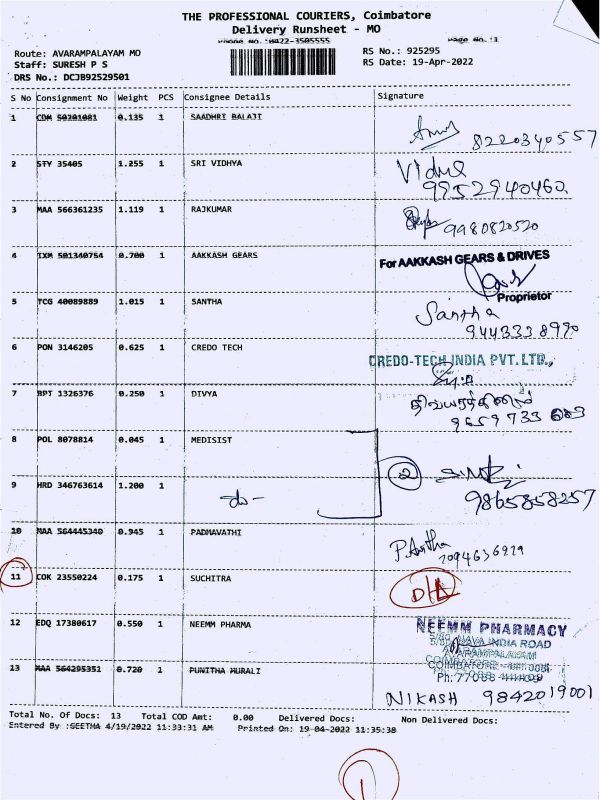 THE PROFESSIONAL COURIERS, Coimbatore
Delivery Runsheet - MO
Phone No.:0422-3505555 Page No.:1
Route: AVARAMPALAYAM MO RS No.: 925295
Staff: SURESH P S RS Date: 19-Apr-2022
DRS No.: DCJB92529501
S No Consignment No Weight PCS Consignee Details Signature
1 CDM 50201081 0.135 1 SAADHRI BALAJI 8220340557
2 STY 35405 1.255 1 SRI VIDHYA Vidya
9952940460
3 MAA 566361235 1.119 1 RAJKUMAR 9980820520
4 IXM 501340754 0.700 1 AAKKASH GEARS For AAKKASH GEARS & DRIVES
Proprietor
5 TCG 40089889 1.015 1 SANTHA Santha
9443338990
6 PON 3146205 0.625 1 CREDO TECH CREDO-TECH INDIA PVT. LTD.,
7 BPT 1326376 0.250 1 DIVYA
9659733
8 POL 8078814 0.045 1 MEDISIST 2
9 HRD 346763614 1.200 1 -do- 9865858257
10 MAA 564445340 0.945 1 PADMAVATHI P. Anitha
11 COK 23550224 0.175 1 SUCHITRA D/L
12 EDQ 17380617 0.550 1 NEEMM PHARMA NEEMM PHARMACY
NAVA INDIA ROAD
AVARAMPALAYAM
COIMBATORE
13 MAA 564295351 0.720 1 PUNITHA MURALI Ph: 77088
NIKASH 9842019001
Total No. Of Docs: 13 Total COD Amt: 0.00 Delivered Docs: Non Delivered Docs:
Entered By :GEETHA 4/19/2022 11:33:31 AM Printed On: 19-04-2022 11:35:38
1